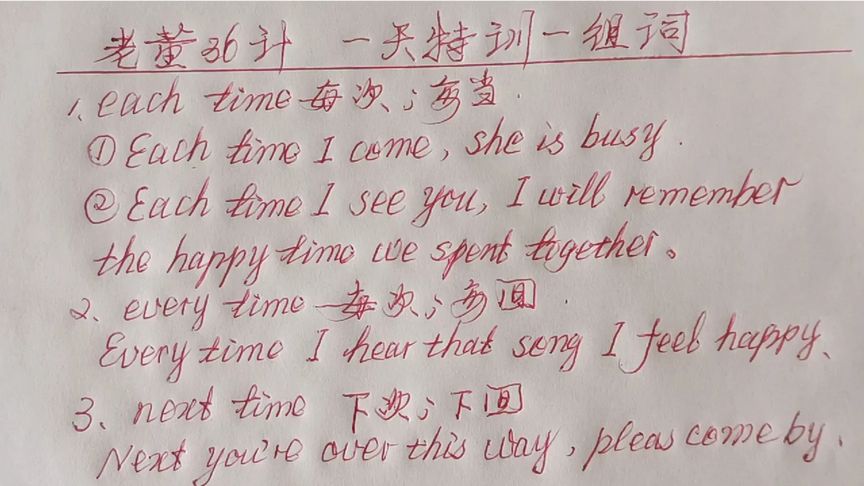 老董36计 一天特训一组词
1. each time 每次；每当.
① Each time I come, she is busy.
② Each time I see you, I will remember
the happy time we spent together。
2、every time 每次；每回.
Every time I hear that song I feel happy、
3、next time 下次；下回
Next you're over this way, pleas come by、